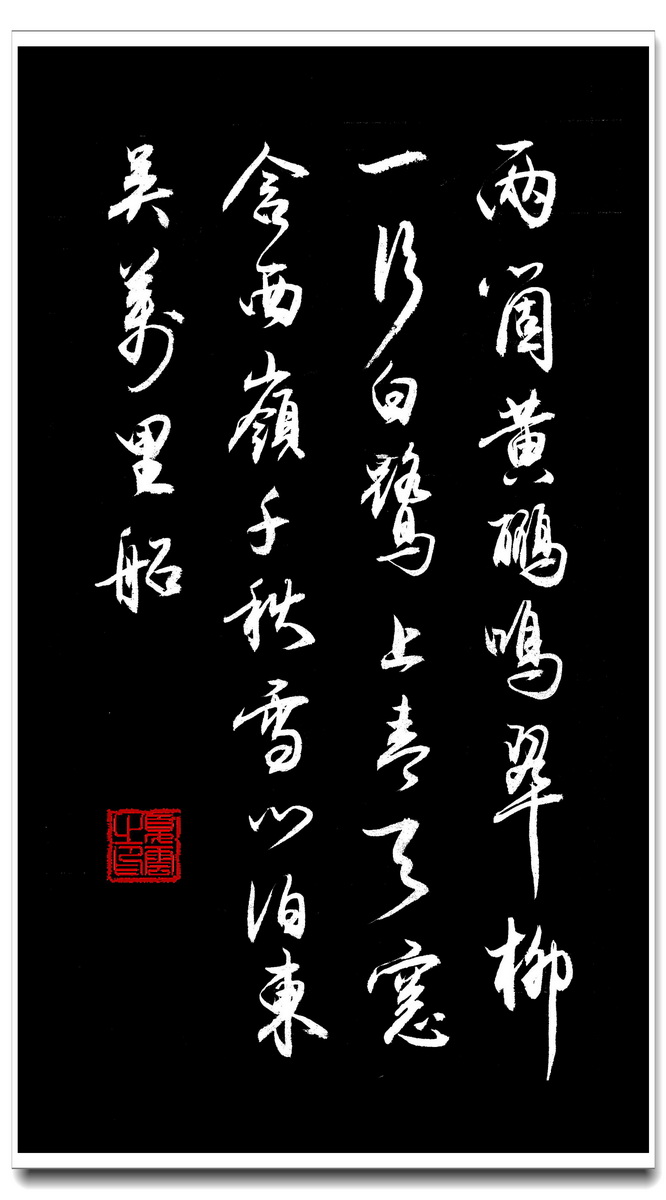 兩箇黃鸝鳴翠柳
一行白鷺上青天窻
含西嶺千秋雪門泊東
吳萬里船